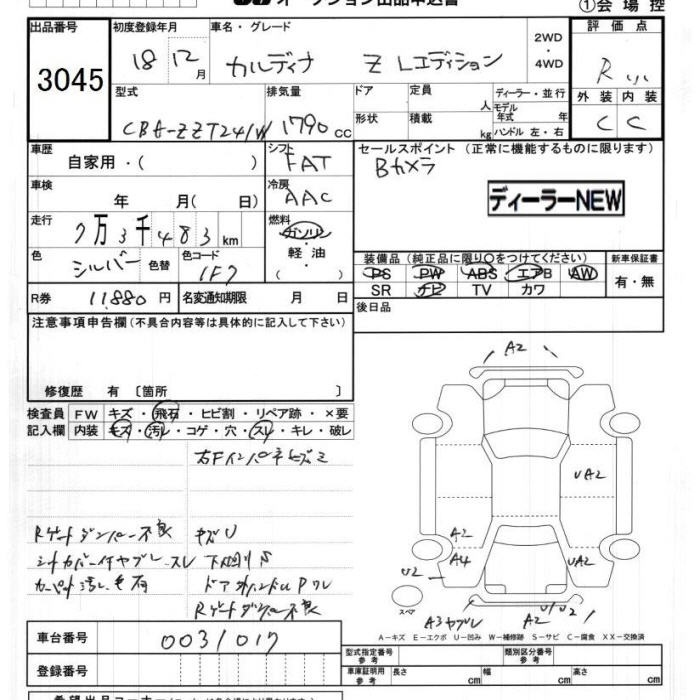 オークション出品申込書
①会場控
出品番号 初度登録年月 車名・グレード 2WD 評価点
3045 18 12月 カルディナ Z Lエディション ・4WD R
型式 排気量 ドア 定員 人 ディーラー・並行 外装 内装
CBA-ZZT241W 1790 cc 形状 積載 kg モデル年式 年 C C
ハンドル 左・右
車歴 シフト セールスポイント (正常に機能するものに限ります)
自家用・( ) FAT Bカメラ
車検 冷房 ディーラーNEW
年 月( 日) AAC
走行 燃料
7万3千483km ガソリン
色 色替 色コード ・軽油 装備品(純正品に限り○をつけてください) 新車保証書
シルバー 1F7 PS PW ABS エアB AW 有・無
R券 11,880円 名変通知期限 月 日 SR ナビ TV カワ
注意事項申告欄(不具合内容等は具体的に記入して下さい) 後日品
修復歴 有〔箇所 〕
検査員 FW キズ・飛石・ヒビ割・リペア跡・×要
記入欄 内装 キズ・汚レ・コゲ・穴・スレ・キレ・破レ
右Fインパネヒズミ
Rゲートダンパー不良 キズU
シートカバー付ヤブレ、スレ 下回りS
カーペット汚レ、毛有 ドアハンドルPワレ
Rゲートダンパー不良
A2
UA2
A2
A4 UA2
U2
スペア
A3ヤブレ A2 U1U2
A-キズ E-エクボ U-凹み W-補修跡 S-サビ C-腐食 XX-交換済
車台番号 0031017
登録番号
型式指定番号 参考 類別区分番号 参考
車庫証明用 参考 長さ cm 幅 cm 高さ cm